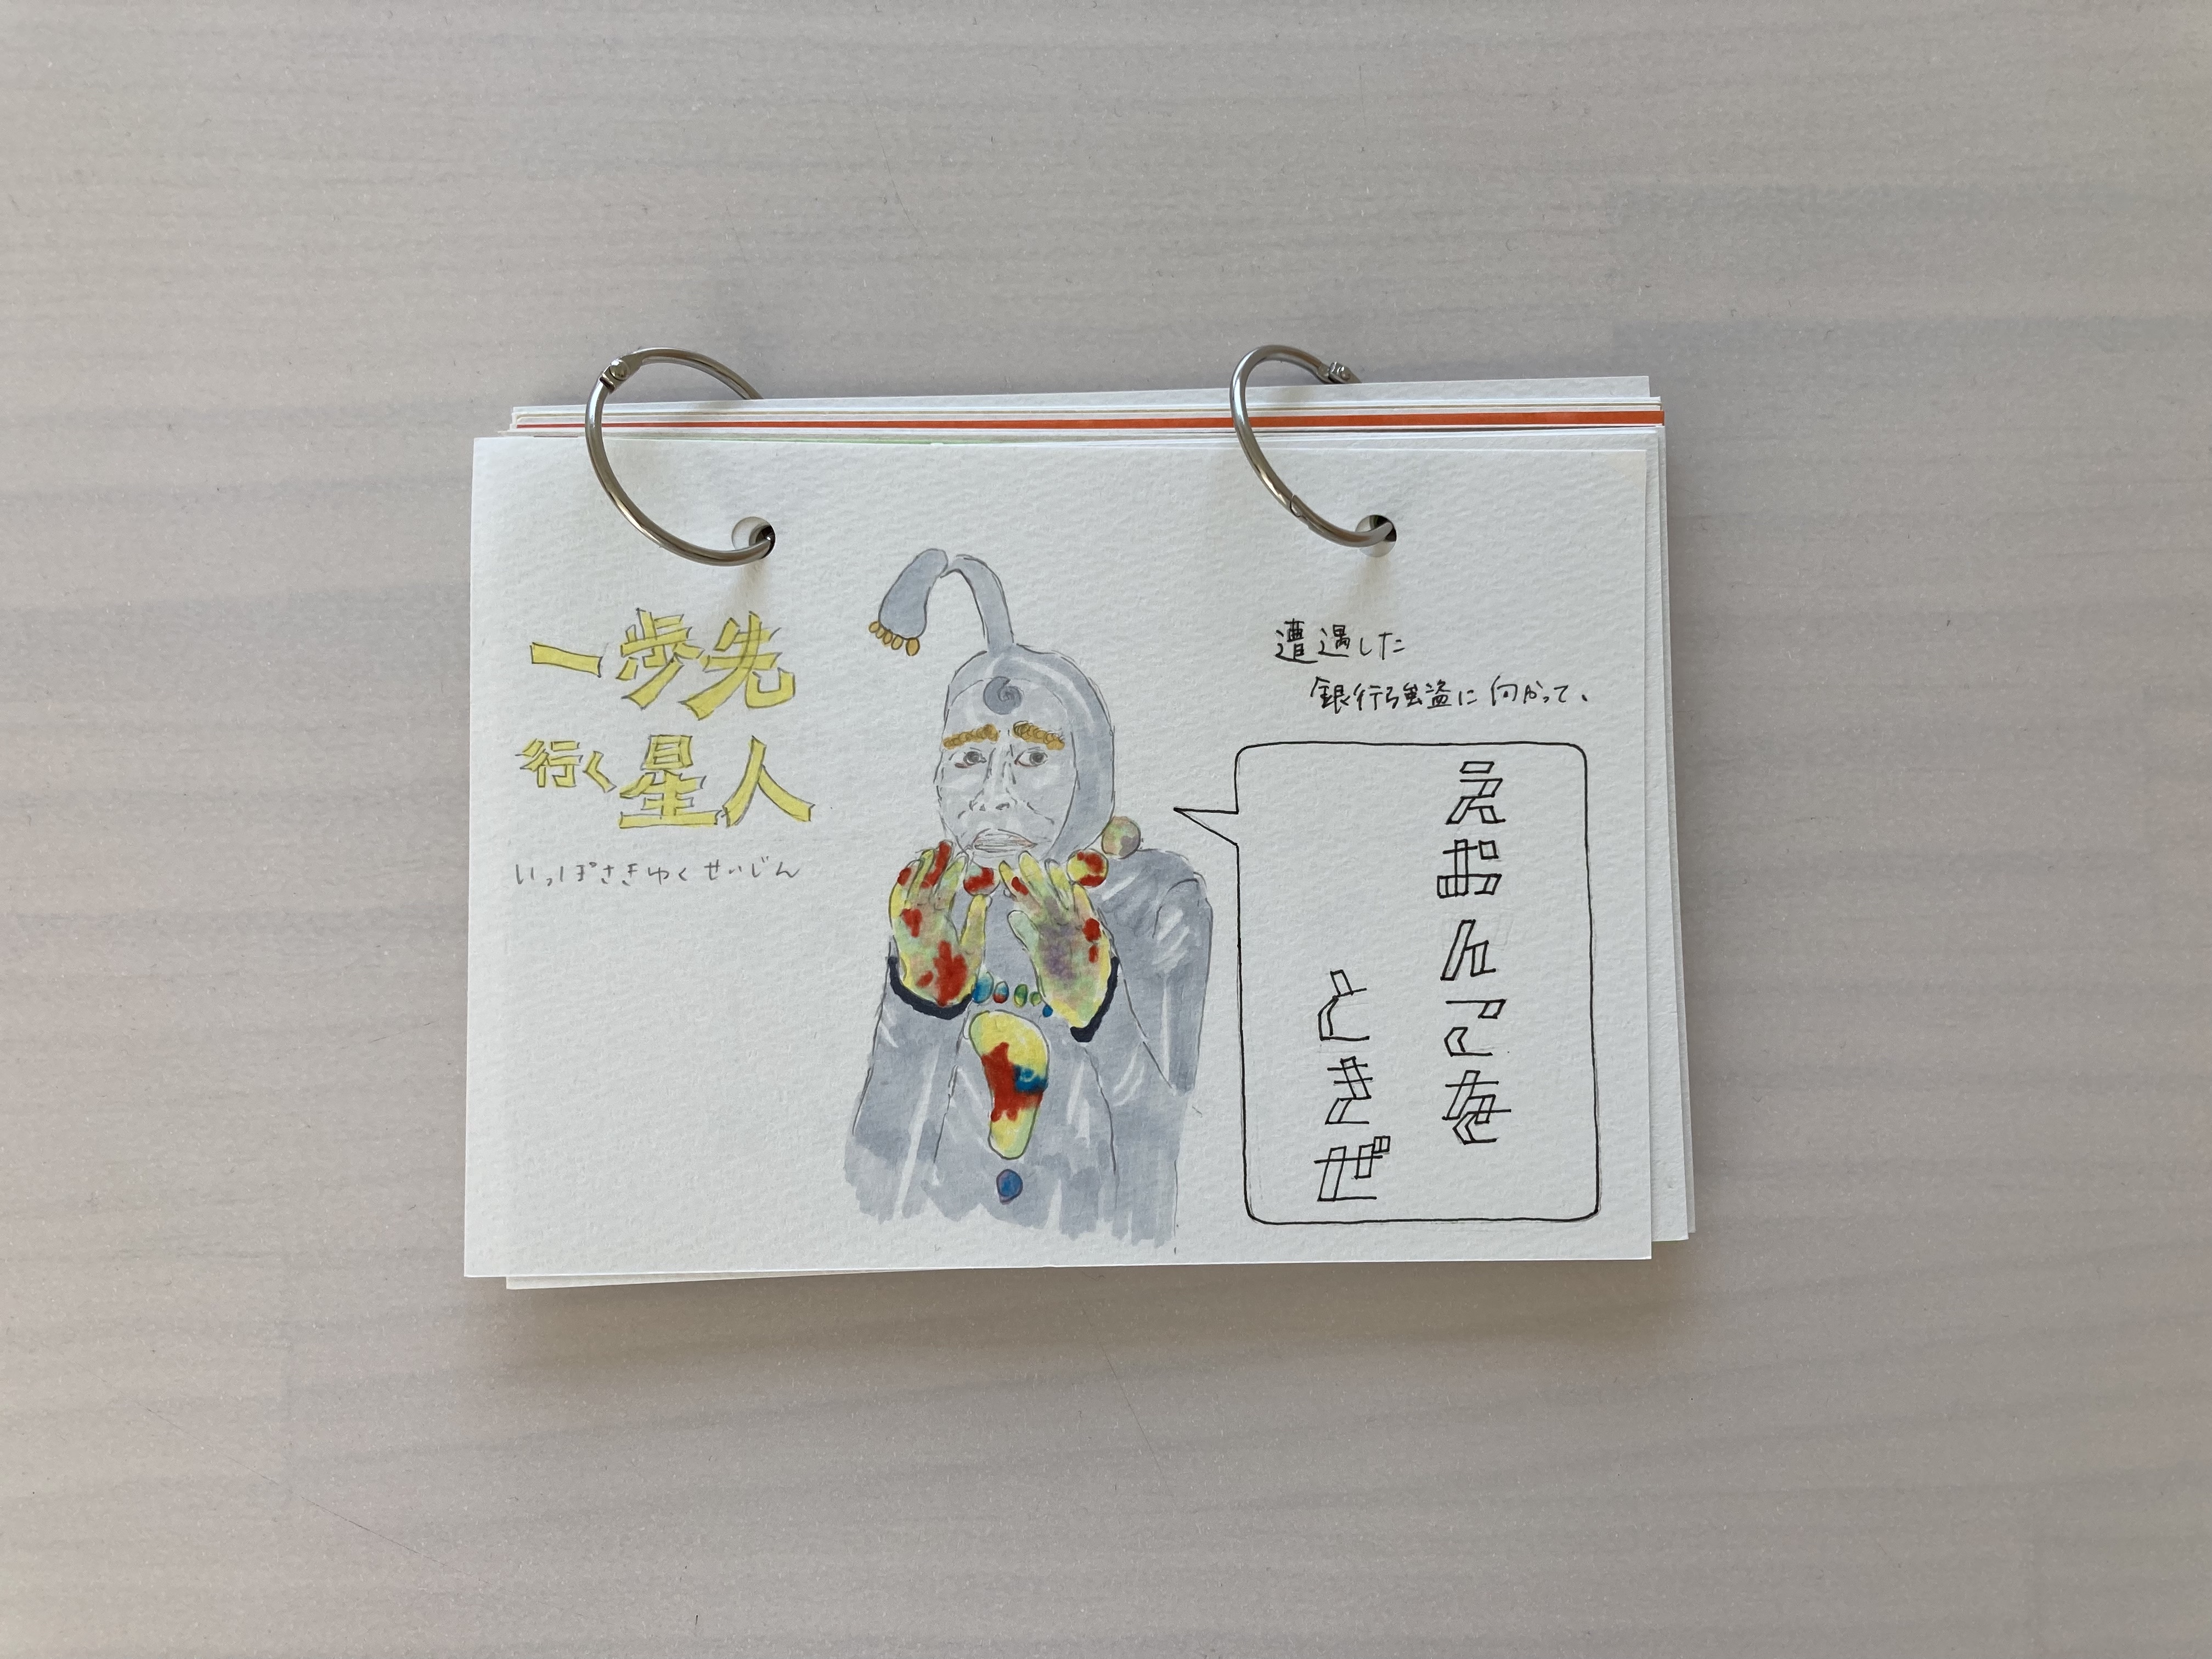 一歩先
行く星人
いっぽさきゆくせいじん
遭遇した
銀行強盗に向かって、
えおんこを
ときぜ